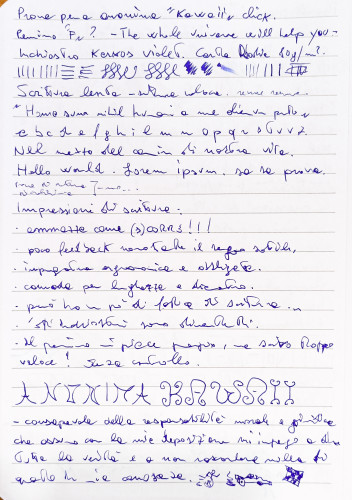 Prova penna anonima "Kawaii" click.
Pennino F? - The whole universe will help you -
Inchiostro Kaweco violet. Carta 80g/m².
Scrittura lenta - scrittura veloce.
"Homo sum nihil humani a me alienum puto"
a b c d e f g h i l m n o p q r s t u v z
Nel mezzo del cammin di nostra vita.
Hello world. Lorem ipsum. sa sa prova.
Impressioni di scrittura:
- ammazza come (s)corre!!!
- poco feedback nonostante il segno sottile.
- impugnatura ergonomica e obbligata.
- comoda per lunghezza e diametro.
- può ho un po' di fatica di scrittura...
- gli indurimenti sono
- Il pennino mi piace proprio, ma scrivo troppo
veloce! Senza controllo.
ANONIMA KAWAII
- consapevole della responsabilità morale e giuridica
che assumo con la mia deposizione mi impegno a dire
tutta la verità e a non nascondere nulla di
quanto di mia conoscenza.